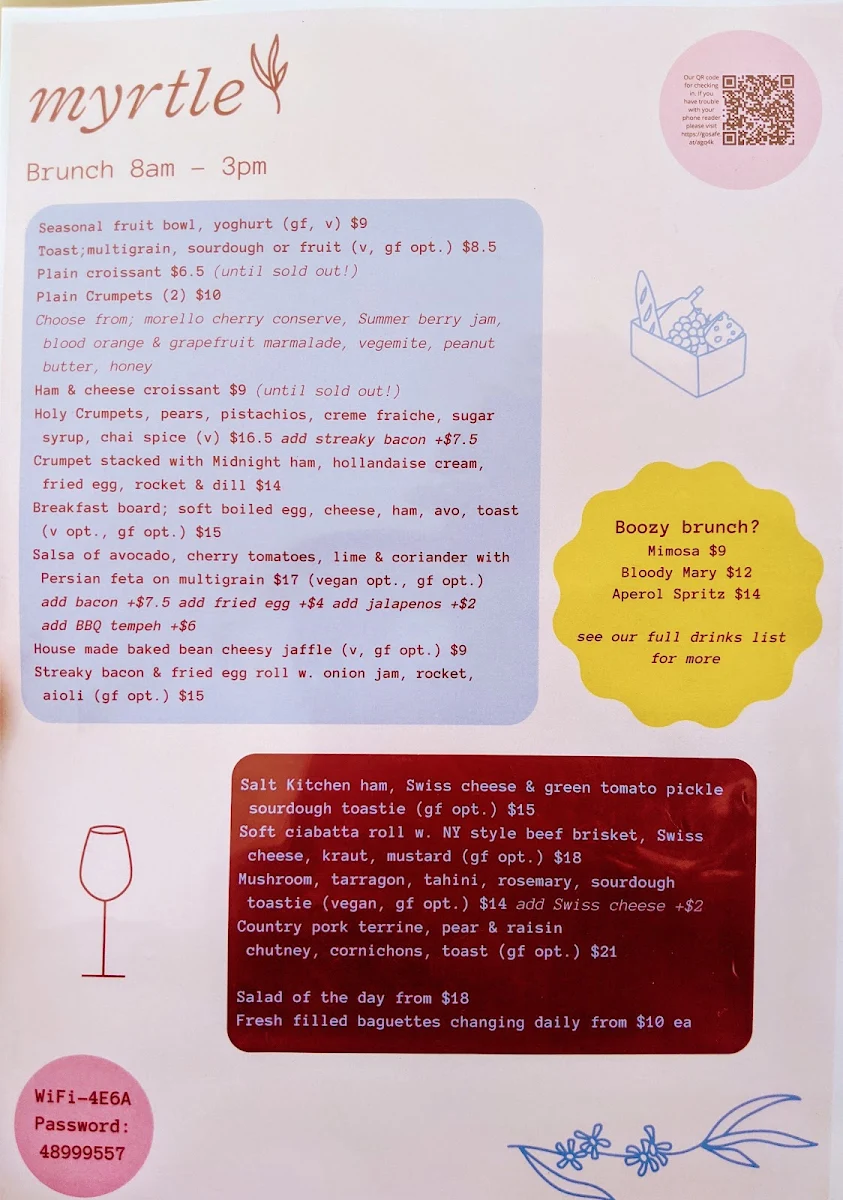 myrtle
Brunch 8am – 3pm
Our QR code
for checking
in. If you
have trouble
with your
phone reader
please visit
https://gosafe.
at/agq4k
Seasonal fruit bowl, yoghurt (gf, v) $9
Toast;multigrain, sourdough or fruit (v, gf opt.) $8.5
Plain croissant $6.5 (until sold out!)
Plain Crumpets (2) $10
Choose from; morello cherry conserve, Summer berry jam,
blood orange & grapefruit marmalade, vegemite, peanut
butter, honey
Ham & cheese croissant $9 (until sold out!)
Holy Crumpets, pears, pistachios, creme fraiche, sugar
syrup, chai spice (v) $16.5 add streaky bacon +$7.5
Crumpet stacked with Midnight ham, hollandaise cream,
fried egg, rocket & dill $14
Breakfast board; soft boiled egg, cheese, ham, avo, toast
(v opt., gf opt.) $15
Salsa of avocado, cherry tomatoes, lime & coriander with
Persian feta on multigrain $17 (vegan opt., gf opt.)
add bacon +$7.5 add fried egg +$4 add jalapenos +$2
add BBQ tempeh +$6
House made baked bean cheesy jaffle (v, gf opt.) $9
Streaky bacon & fried egg roll w. onion jam, rocket,
aioli (gf opt.) $15
Boozy brunch?
Mimosa $9
Bloody Mary $12
Aperol Spritz $14
see our full drinks list
for more
Salt Kitchen ham, Swiss cheese & green tomato pickle
sourdough toastie (gf opt.) $15
Soft ciabatta roll w. NY style beef brisket, Swiss
cheese, kraut, mustard (gf opt.) $18
Mushroom, tarragon, tahini, rosemary, sourdough
toastie (vegan, gf opt.) $14 add Swiss cheese +$2
Country pork terrine, pear & raisin
chutney, cornichons, toast (gf opt.) $21
Salad of the day from $18
Fresh filled baguettes changing daily from $10 ea
WiFi-4E6A
Password:
48999557